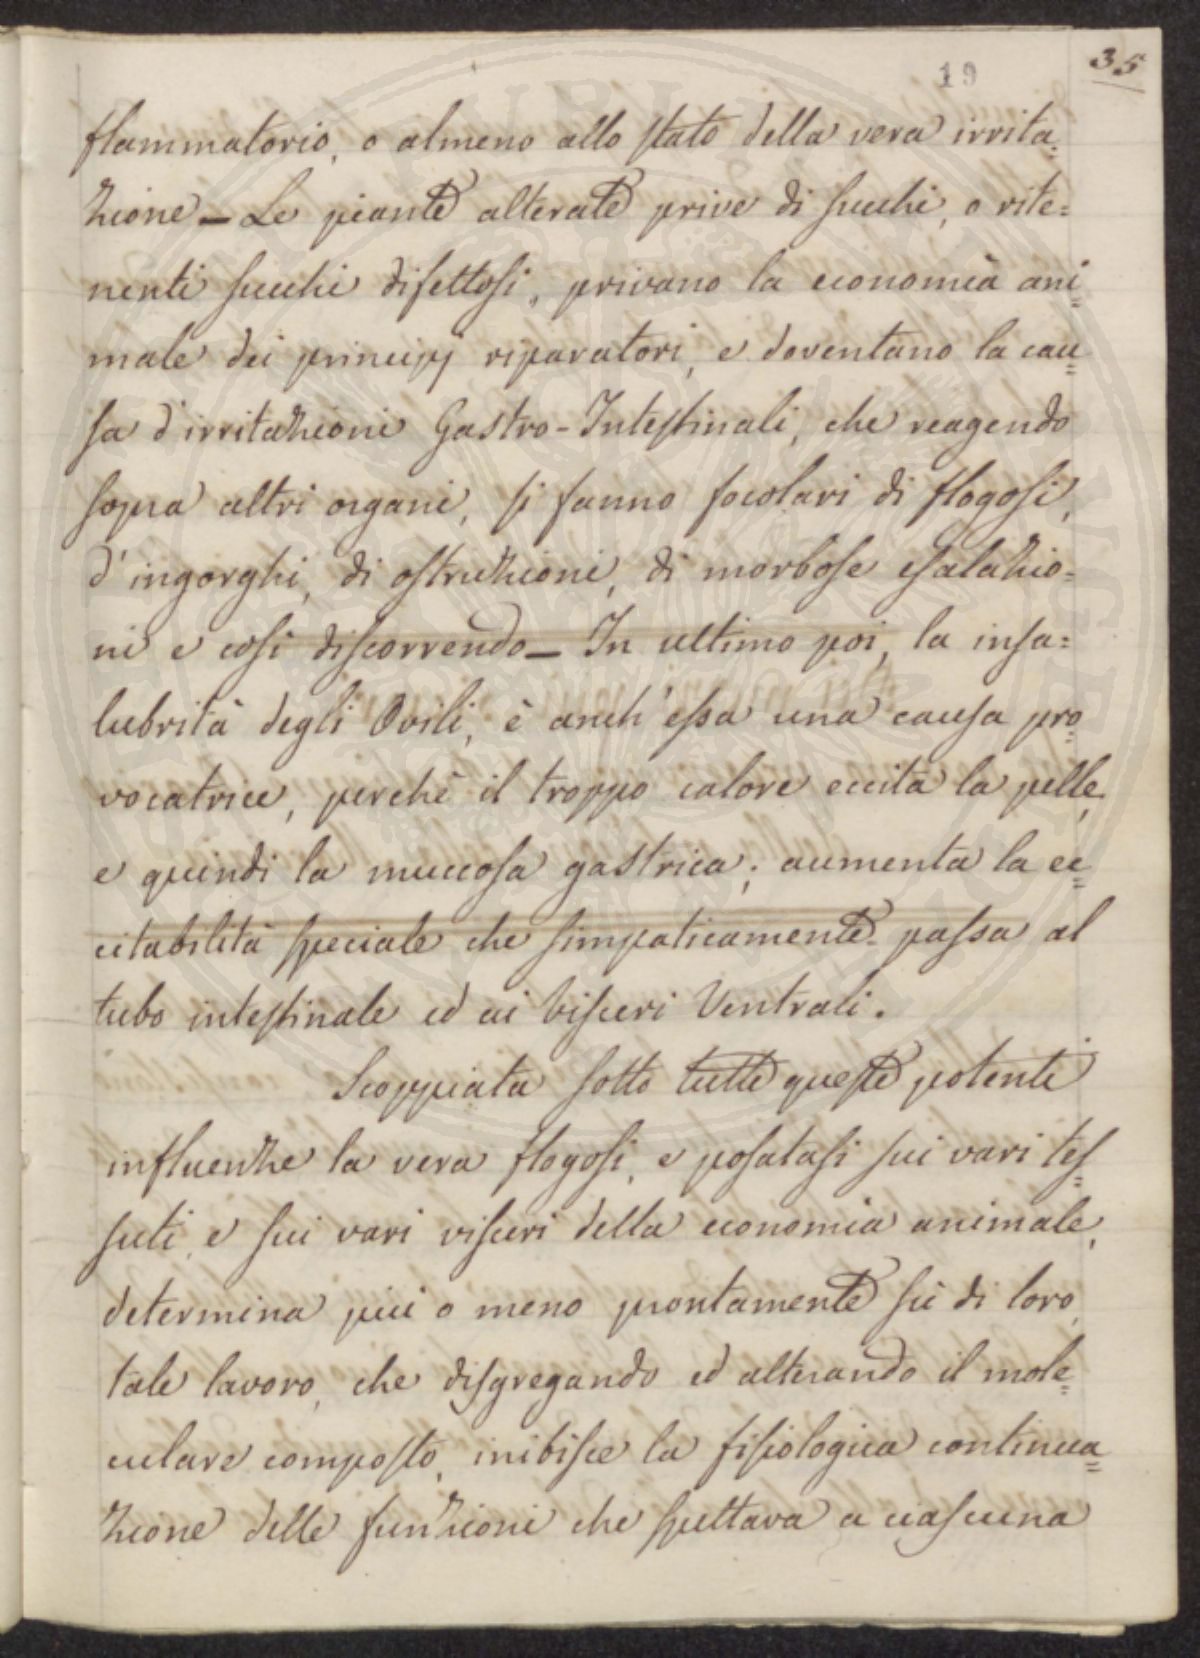 19
35
flammatorio, o almeno allo stato della vera irrita=
zione — Le piante alterate prive di succhi, o rite=
nenti succhi difettosi, privano la economia ani=
male dei principj riparatori, e doventano la cau=
sa d'irritazioni Gastro-Intestinali, che reagendo
sopra altri organi, si fanno focolari di flogosi,
d'ingorghi, di ostruzioni, di morbose esalazio=
ni e così discorrendo — In ultimo poi, la insa=
lubrità degli Ovili, è anch'essa una causa pro=
vocatrice, perchè il troppo calore eccita la pelle,
e quindi la muccosa gastrica; aumenta la ec=
citabilità speciale che simpaticamente passa al
tubo intestinale ed ai Visceri Ventrali.
Scoppiata sotto tutte queste potenti
influenze la vera flogosi, e posatasi sui vari tes=
suti, e sui vari visceri della economia animale,
determina più o meno prontamente su di loro,
tale lavoro, che disgregando ed alterando il mole=
culare composto, inibisce la fisiologica continua=
zione delle funzioni che spettava a ciascuna